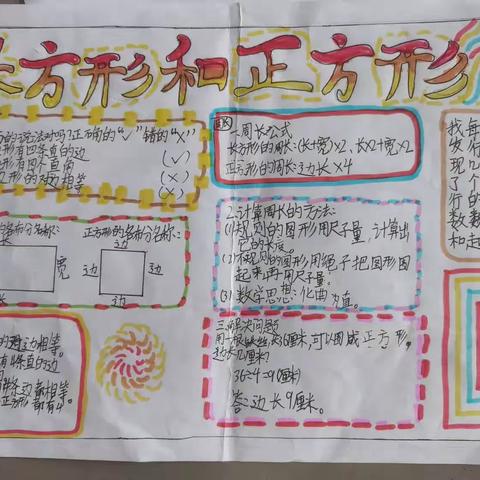 长方形和正方形
的说法对吗?正确的"√"错的"×"
形有四条直的边 (√)
形有四个直角 (×)
形的对边相等 (×)
的各部分名称:
长
宽
长
正方形的各部分名称:
边
边
边
边
的对边相等。
有4条直的边
条边都相等
正方形都有4
一周长公式
长方形的周长:(长+宽)×2、长×2+宽×2
正方形的周长:边长×4
2.计算周长的方法:
(1)规则的图形用尺子量,计算出
它的长度。
(2)不规则的图形用绳子把图形围
起来再用尺子量。
(3).数学思想:化曲为直。
三.解决问题
用一根铁丝长36厘米,可以围成正方形。
边长几厘米?
36÷4=9(厘米)
答:边长9厘米。
我
发行
现
了个
行的
数数
和起